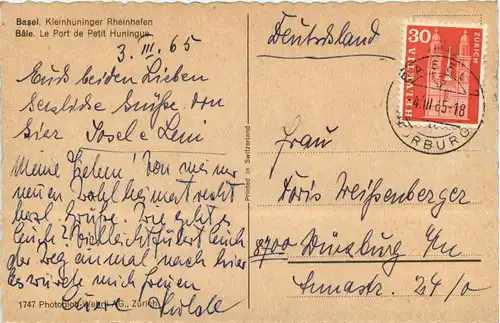 Basel. Kleinhüninger Rheinhafen
Bâle. Le Port de Petit Huningue
3. III. 65
Euch beiden Lieben
herzliche Grüße von
hier Josel e Leni
Meine Lieben! Von meiner
neuen Wahlheimat recht
herzl. Grüße. Wie geht es
Euch? Vielleicht führt Euch
der Weg einmal nach hier
Es würde mich freuen
Euer
1747 Photoglob-Wehrli AG., Zürich
Printed in Switzerland
Deutschland
HELVETIA
30
ZÜRICH
4.III.65-18
Frau
Doris Weißenberger
8700 Würzburg a/M
Annastr. 24/0